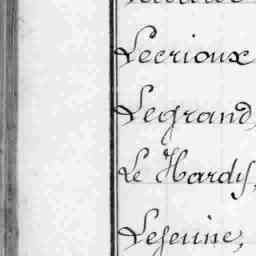 Lecrioux
Legrand,
Le Hardy,
Lejeune,